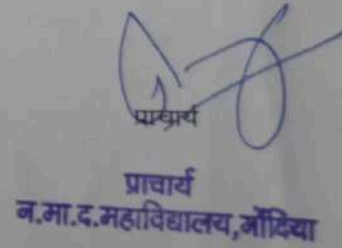 प्राचार्य
प्राचार्य
न.मा.द.महाविद्यालय,गोंदिया